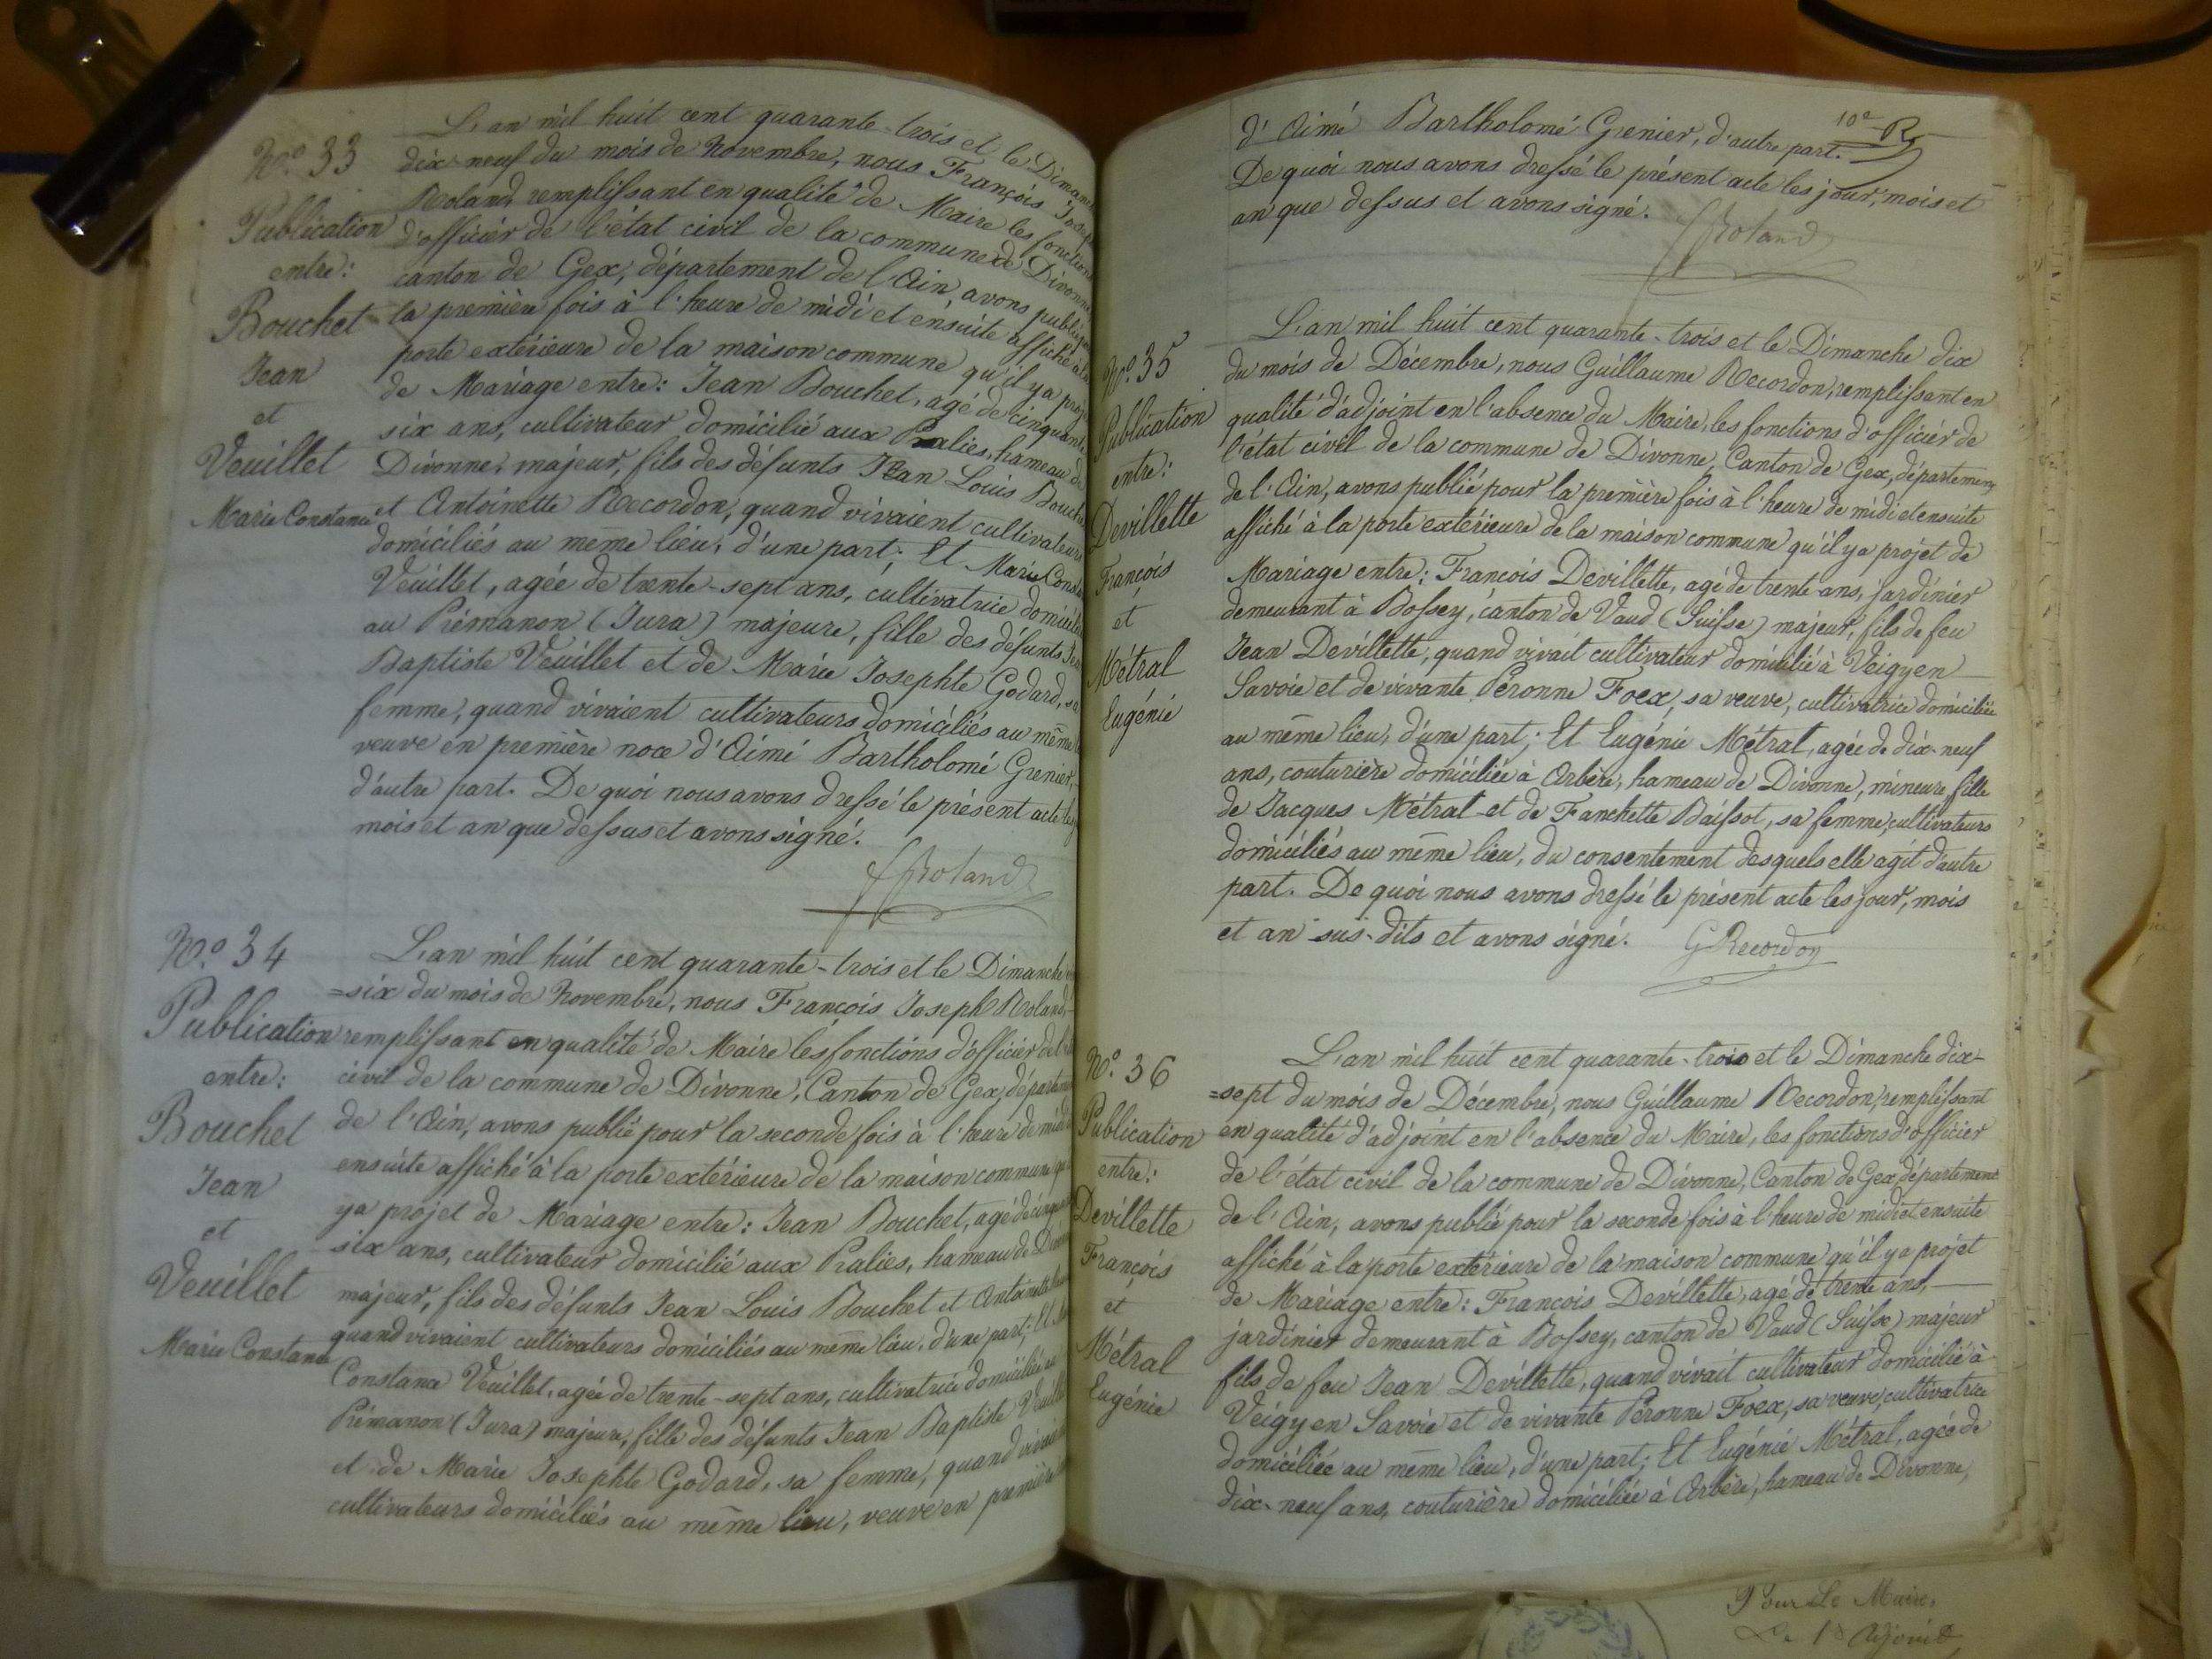 N.o 33
Publication
entre:
Bouchet
Jean
et
Veuillet
Marie Constance
L'an mil huit cent quarante-trois et le Dimanche
dix-neuf du mois de Novembre, nous François Joseph
Roland, remplissant en qualité de Maire les fonctions
d'officier de l'état civil de la commune de Divonne
canton de Gex, département de l'Ain, avons publié pour
la première fois à l'heure de midi et ensuite affiché à la
porte extérieure de la maison commune qu'il y a projet
de Mariage entre: Jean Bouchet, agé de cinquante
six ans, cultivateur domicilié aux Pralies, hameau de
Divonne, majeur, fils des défunts Jean Louis Bouchet
et Antoinette Recordon, quand vivaient cultivateurs
domiciliés au même lieu, d'une part; Et Marie Constance
Veuillet, agée de trente-sept ans, cultivatrice domiciliée
au Prémanon (Jura) majeure, fille des défunts Jean
Baptiste Veuillet et de Marie Josephte Godard, sa
femme, quand vivaient cultivateurs domiciliés au même
veuve en première noce d'Aimé Bartholomé Grenier,
d'autre part. De quoi nous avons dressé le présent acte les
mois et an que dessus et avons signé.
Roland
N.o 34
Publication
entre:
Bouchet
Jean
et
Veuillet
Marie Constance
L'an mil huit cent quarante-trois et le Dimanche
=six du mois de Novembre, nous François Joseph Roland,
remplissant en qualité de Maire les fonctions d'officier de l'état
civil de la commune de Divonne, Canton de Gex, département
de l'Ain, avons publié pour la seconde fois à l'heure de midi
ensuite affiché à la porte extérieure de la maison commune
y a projet de Mariage entre: Jean Bouchet, agé de cinquante
six ans, cultivateur domicilié aux Pralies, hameau de Divonne
majeur, fils des défunts Jean Louis Bouchet et Antoinette
quand vivaient cultivateurs domiciliés au même lieu, d'une part; Et
Constance Veuillet, agée de trente-sept ans, cultivatrice domiciliée au
Prémanon (Jura) majeure, fille des défunts Jean Baptiste Veuillet
et de Marie Josephte Godard, sa femme, quand vivaient
cultivateurs domiciliés au même lieu, veuve en première
10e R
d'Aimé Bartholomé Grenier, d'autre part.
De quoi nous avons dressé le présent acte les jour, mois et
an que dessus et avons signé.
Roland
N.o 35
Publication
entre:
Devillette
François
et
Métral
Eugénie
L'an mil huit cent quarante-trois et le Dimanche dix
du mois de Décembre, nous Guillaume Recordon, remplissant en
qualité d'adjoint en l'absence du Maire, les fonctions d'officier de
l'état civil de la commune de Divonne, Canton de Gex, département
de l'Ain, avons publié pour la première fois à l'heure de midi et ensuite
affiché à la porte extérieure de la maison commune qu'il y a projet de
Mariage entre: François Devillette, agé de trente ans, jardinier
demeurant à Bossey, canton de Vaud (Suisse) majeur, fils de feu
Jean Devillette, quand vivait cultivateur domicilié à Veigy en
Savoie et de vivante Péronne Foex, sa veuve, cultivatrice domiciliée
au même lieu, d'une part; Et Eugénie Métral, agée de dix-neuf
ans, couturière domiciliée à Arbère, hameau de Divonne, mineure fille
de Jacques Métral et de Fanchette Baissot, sa femme, cultivateurs
domiciliés au même lieu, du consentement desquels elle agit d'autre
part. De quoi nous avons dressé le présent acte les jour, mois
et an sus-dits et avons signé.
GRecordon
N.o 36
Publication
entre:
Devillette
François
et
Métral
Eugénie
L'an mil huit cent quarante-trois et le Dimanche dix-
=sept du mois de Décembre, nous Guillaume Recordon, remplissant
en qualité d'adjoint en l'absence du Maire, les fonctions d'officier
de l'état civil de la commune de Divonne, Canton de Gex, département
de l'Ain, avons publié pour la seconde fois à l'heure de midi et ensuite
affiché à la porte extérieure de la maison commune qu'il y a projet
de Mariage entre: François Devillette, agé de trente ans,
jardinier demeurant à Bossey, canton de Vaud (Suisse) majeur
fils de feu Jean Devillette, quand vivait cultivateur domicilié à
Veigy en Savoie et de vivante Péronne Foex, sa veuve, cultivatrice
domiciliée au même lieu, d'une part; Et Eugénie Métral, agée de
dix-neuf ans, couturière domiciliée à Arbère, hameau de Divonne,
Pour Le Maire,
Le 1er Adjoint